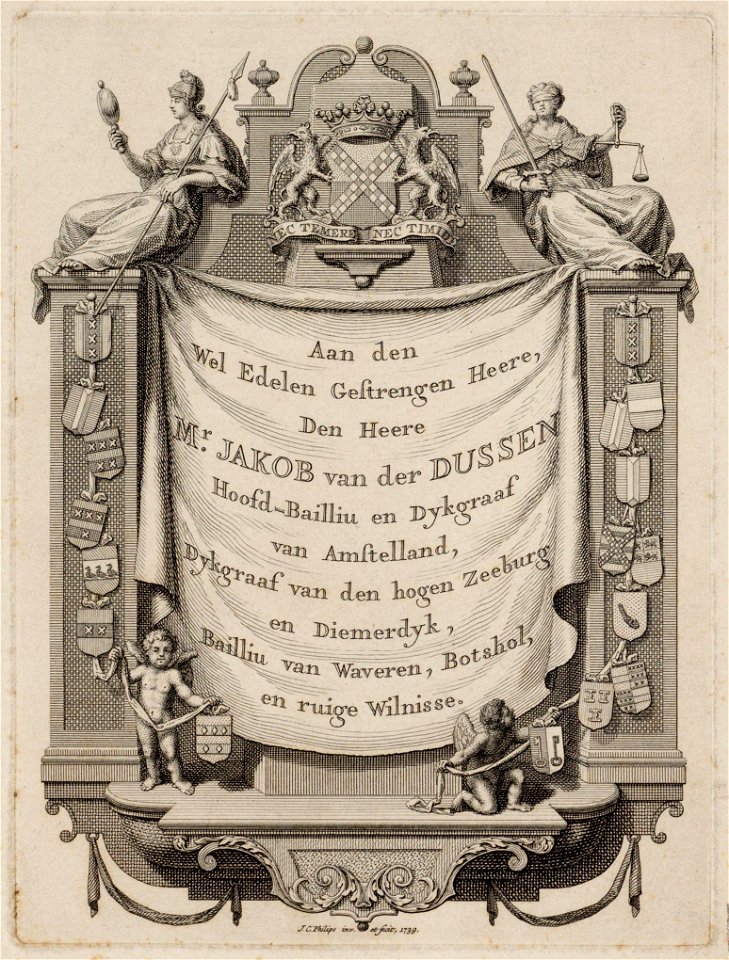 NEC TEMERE NEC TIMIDE
Aan den
Wel Edelen Geſtrengen Heere,
Den Heere
Mr. JAKOB van der DUSSEN
Hoofd-Bailliu en Dykgraaf
van Amſtelland,
Dykgraaf van den hogen Zeeburg
en Diemerdyk,
Bailliu van Waveren, Botshol,
en ruige Wilnisse.
J.C. Philips inv. et fecit, 1739.